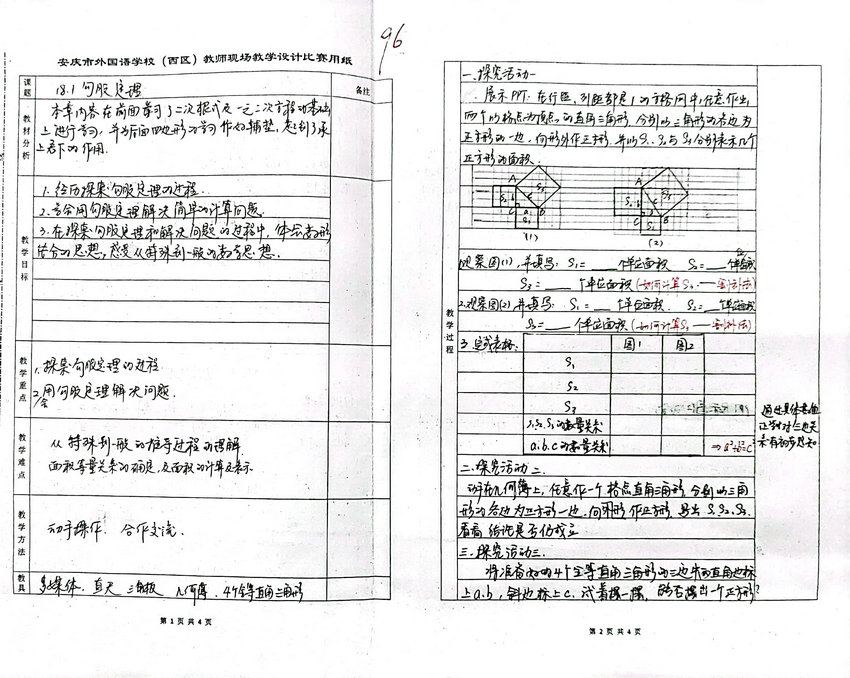 96
安庆市外国语学校（西区）教师现场教学设计比赛用纸
课题 18.1 勾股定理 备注
教材分析
本章内容在前面学习了二次根式及一元二次方程的基础
上进行学习，并为后面四边形的学习作好铺垫，起到了承
上启下的作用.
教学目标
1. 经历探索勾股定理的过程.
2. 会用勾股定理解决简单的计算问题.
3. 在探索勾股定理和解决问题的过程中，体会数形
结合的思想，感受从特殊到一般的数学思想.
教学重点
1. 探索勾股定理的过程
2. 会用勾股定理解决问题.
教学难点
从特殊到一般的推导过程的理解
面积等量关系的确定，及面积的计算及表示
教学方法
动手操作. 合作交流.
教具 多媒体. 直尺 三角板 几何簿. 4个全等直角三角形
第 1 页 共 4 页
教学过程
一. 探究活动一
展示PPT: 在行距、列距都是1的方格网中，任意作出
四个以格点为顶点的直角三角形，分别以三角形的各边为
正方形的一边，向形外作正方形，并以S₁、S₂与S₃分别表示几个
正方形的面积.
A S₃ S₂ b c C a B S₁
(1)
A S₃ S₂ b c C a B S₁
(2)
1. 观察图(1)，并填写: S₁=___ 个单位面积 S₂=___ 个单位面积
S₃=___ 个单位面积 (如何计算S₃ —— 割补法)
2. 观察图(2)，并填写: S₁=___ 个单位面积. S₂=___ 个单位面积
S₃=___ 个单位面积 (如何计算S₃ —— 割补法)
3. 完成表格: 图1 图2
S₁
S₂
S₃
S₁,S₂,S₃的数量关系
a.b.c的数量关系 ⇒ a²+b²=c²
二. 探究活动二.
动手在几何簿上，任意作一个格点直角三角形，分别以三角
形的各边为正方形一边，向外形作正方形，
看看结论是否仍成立.
三. 探究活动三.
将准备好的4个全等直角三角形的三边中的直角边标
上a.b，斜边标上c. 试着摆一摆，能否摆出一个正方形?
第 2 页 共 4 页